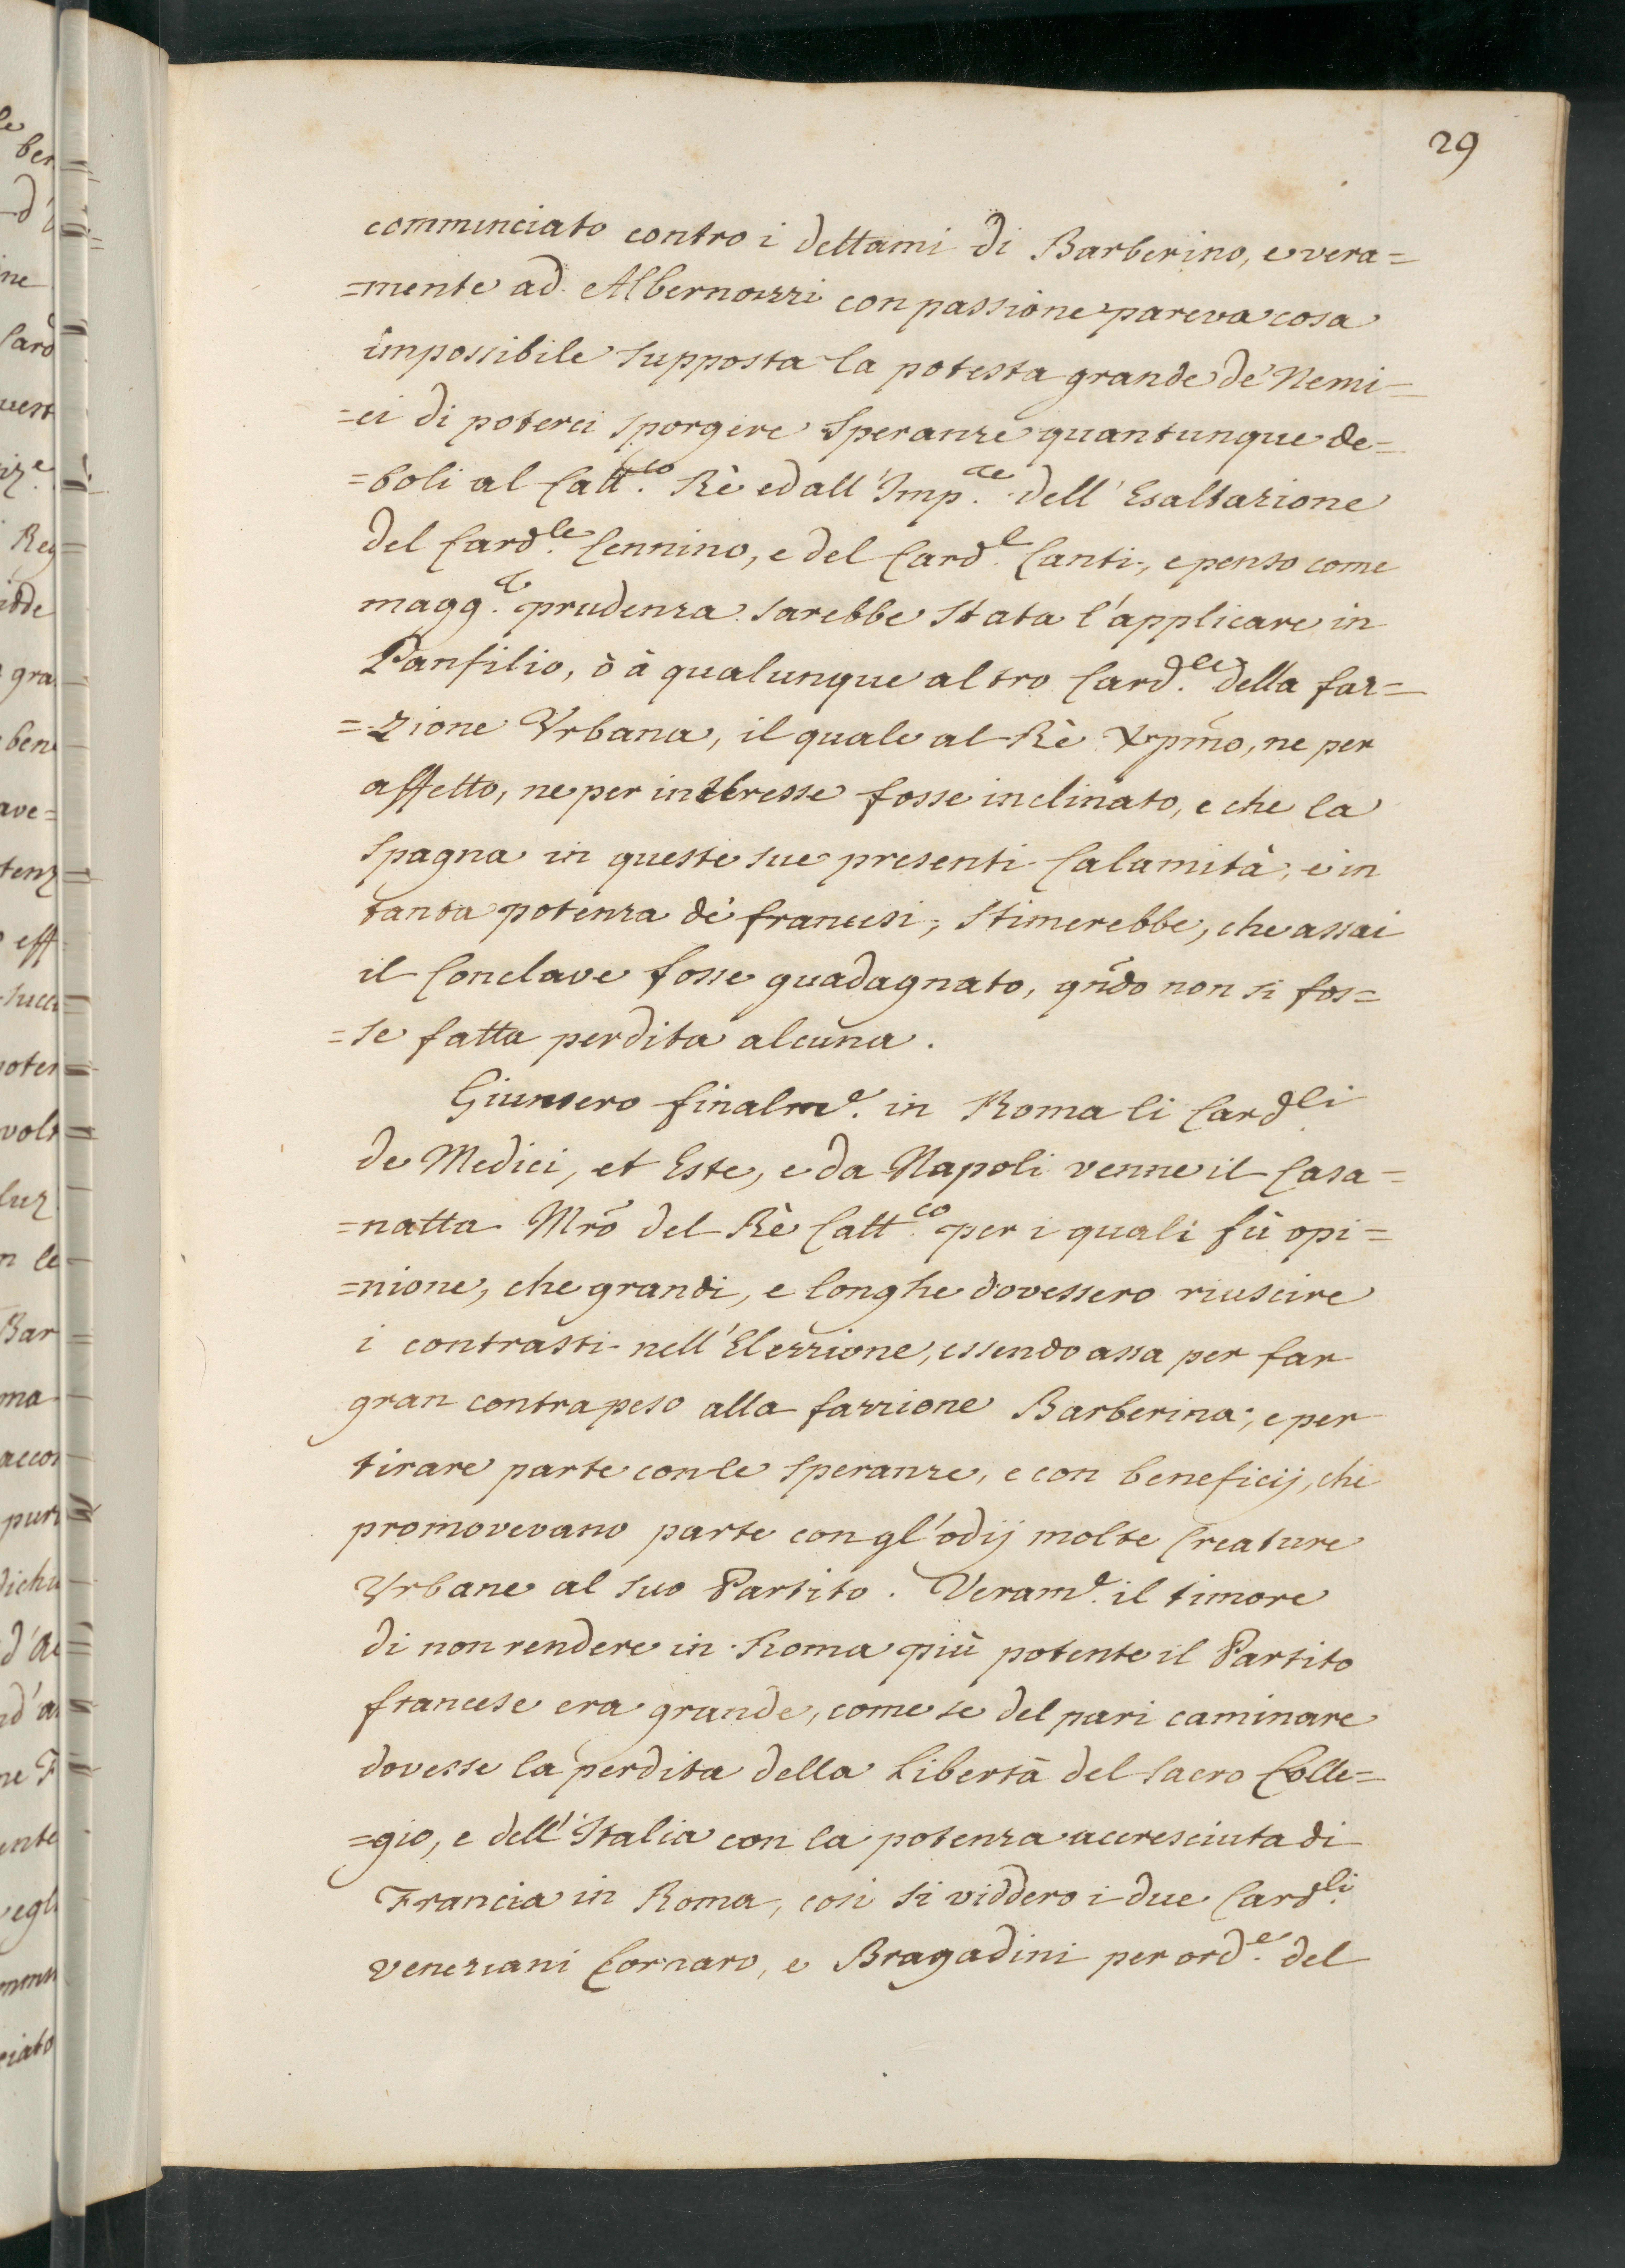 29
comminciato contro i dettami di Barberino, e vera=
=mente ad Albernozzi con passione pareva cosa
impossibile supposta la potesta grande de' Nemi=
=ci di poterci sporgere speranze quantunque de=
=boli al Catt.co Rè ed all' Imp.re dell' Esaltazione
del Card.le Cennino, e del Card.l Canti, e penso come
magg.r prudenza sarebbe stata l'applicare in
Panfilio, ò à qualunque altro Card.le della faz=
=zione Vrbana, il quale al Rè Xpmo, ne per
affetto, ne per interesse fosse inclinato, e che la
Spagna in queste sue presenti Calamità, e in
tanta potenza de' francesi, stimerebbe, che assai
il Conclave fosse guadagnato, qndo non si fos=
=se fatta perdita alcuna.
Giunsero finalm.e in Roma li Card.li
de Medici, et Este, e da Napoli venne il Casa=
=natta Mro del Rè Catt.co per i quali fù opi=
=nione, che grandi, e longhe dovessero riuscire
i contrasti nell' Elezzione, essendo assa per far
gran contrapeso alla fazzione Barberina; e per
tirare parte con le speranze, e con beneficij, che
promovevano parte con gl'odij molte Creature
Vrbane al suo Partito. Veram.e il timore
di non rendere in Roma più potente il Partito
francese era grande, come se del pari caminare
dovesse la perdita della Libertà del Sacro Colle=
=gio, e dell' Italia con la potenza accresciuta di
Francia in Roma, così si viddero i due Card.li
veneziani Cornaro, e Bragadini per ord.e del